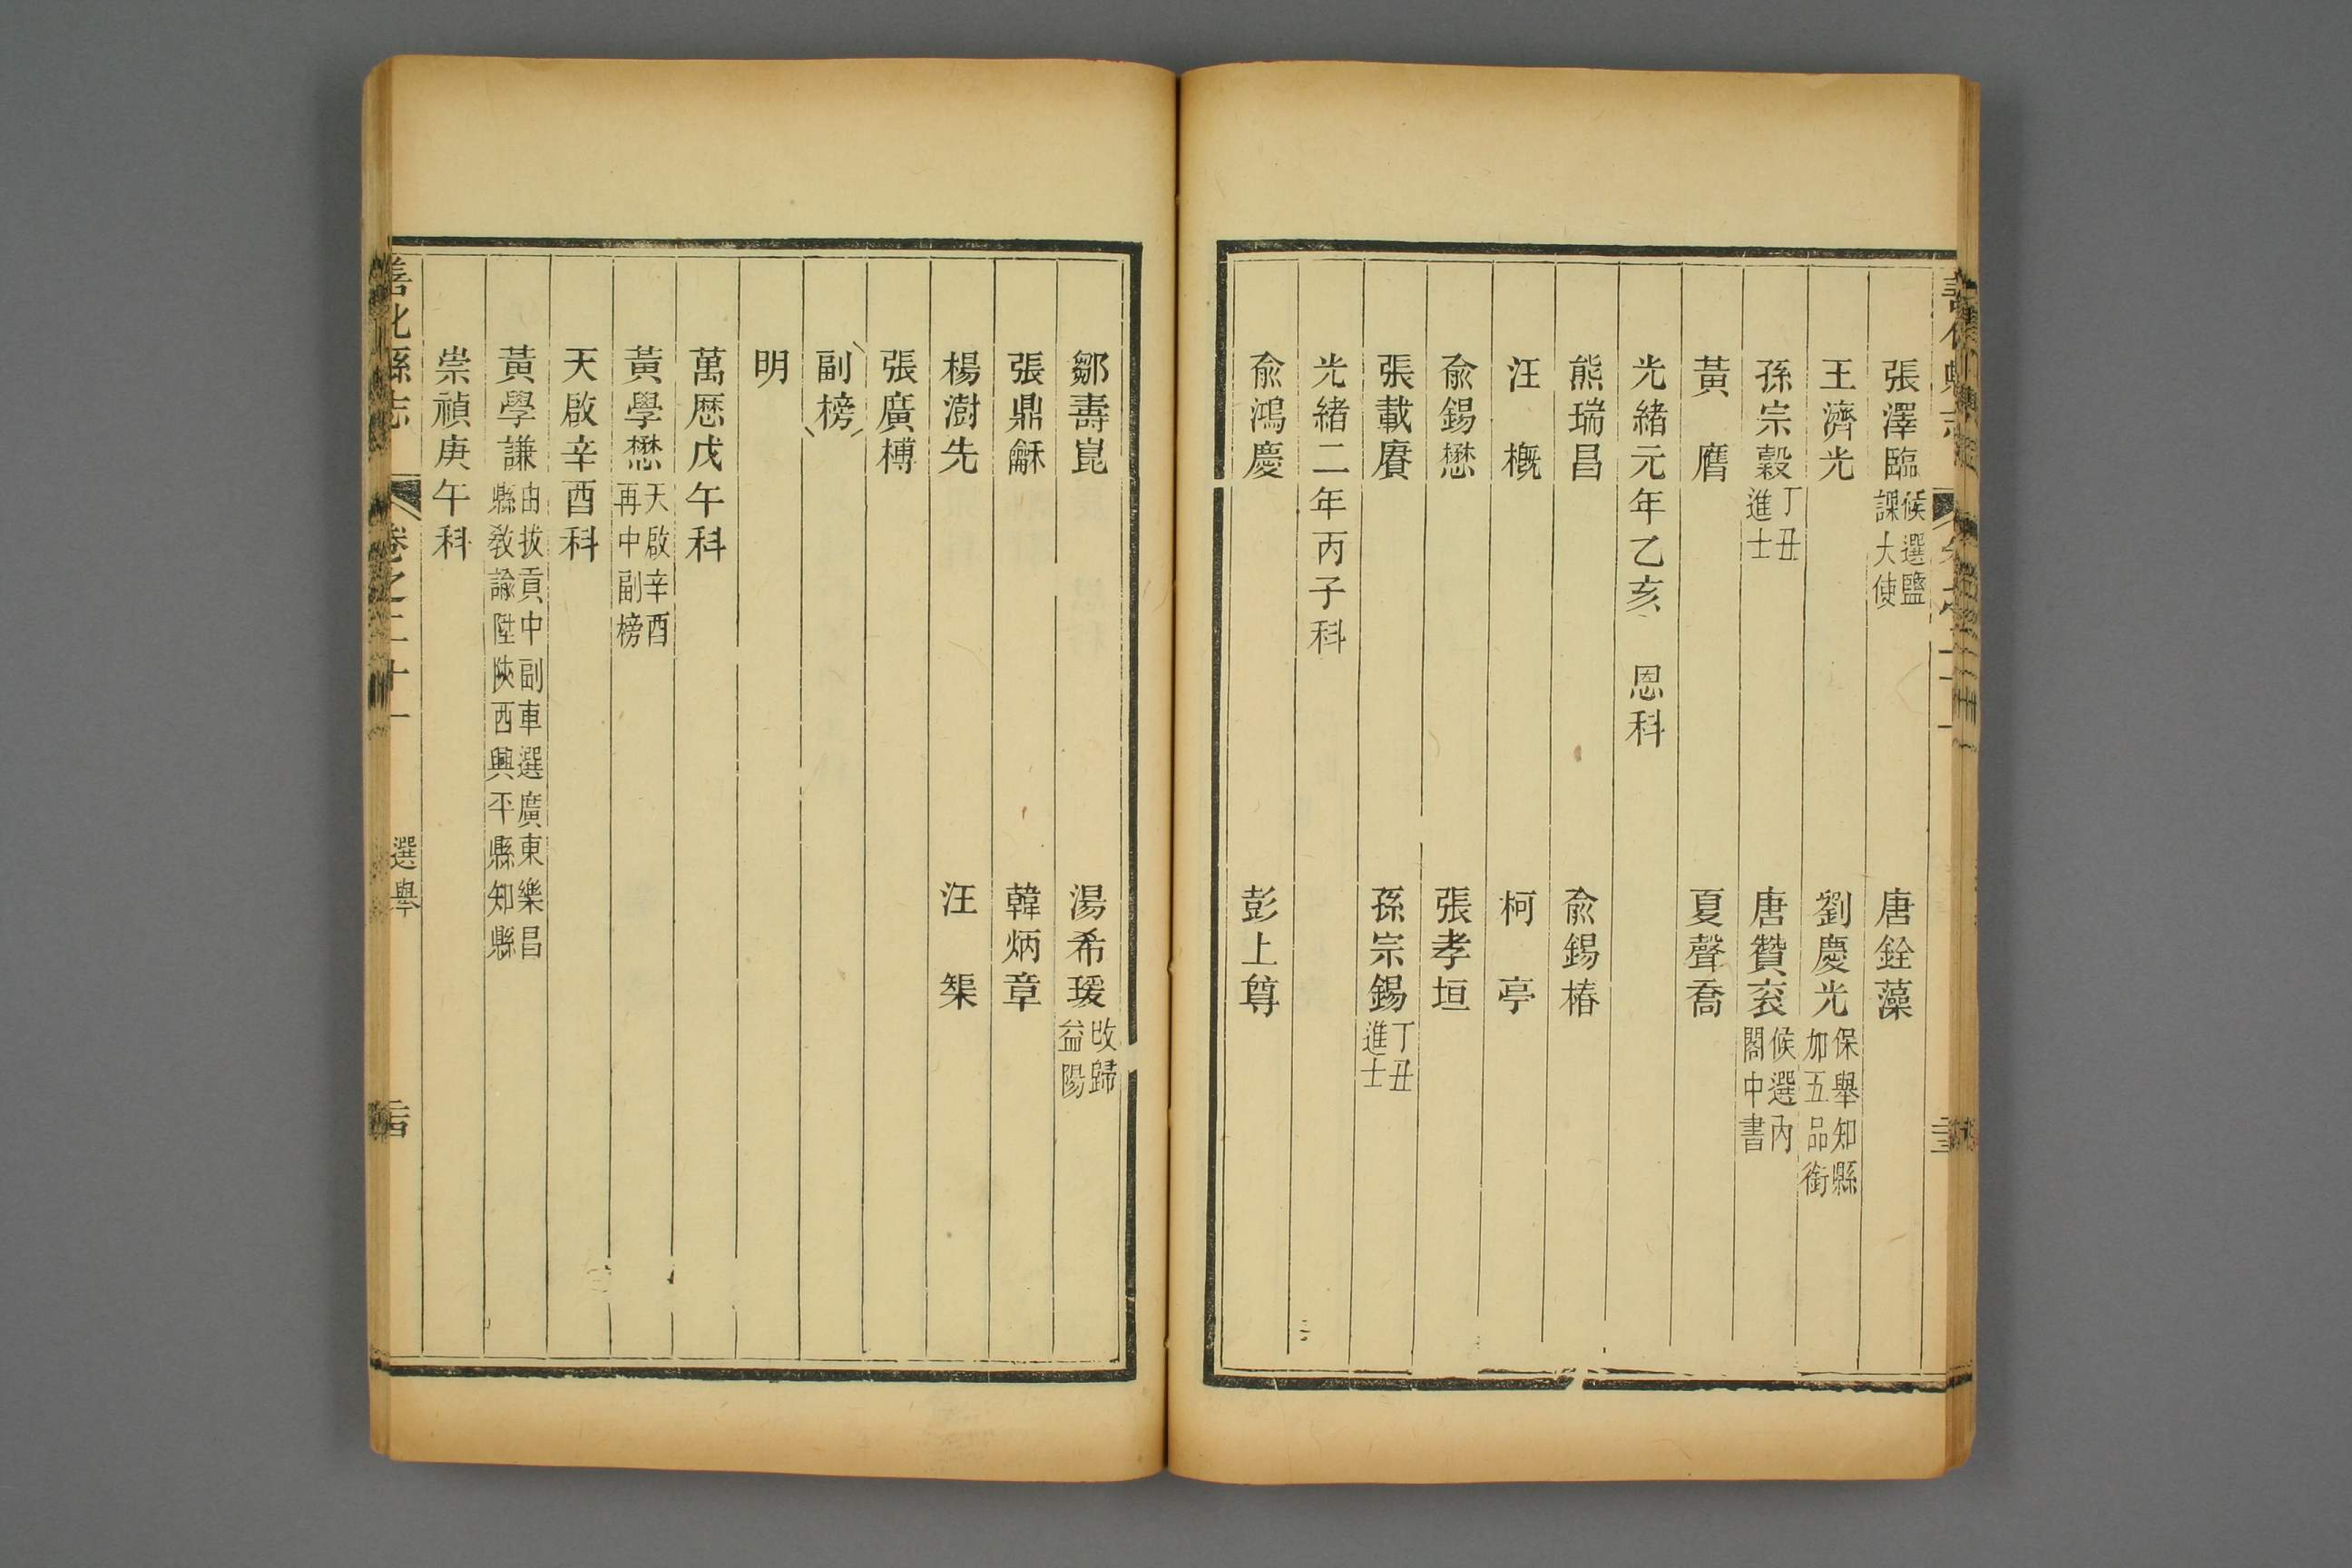 張澤臨候選鹽課大使 唐銓藻
王濟光 劉慶光保舉知縣加五品銜
孫宗穀丁丑進士 唐贊袞候選內閣中書
黃 膺 夏聲喬
光緒元年乙亥 恩科
熊瑞昌 俞錫椿
汪 概 柯 亭
俞錫懋 張孝垣
張載賡 孫宗錫丁丑進士
光緒二年丙子科
俞鴻慶 彭上尊
鄒壽崑 湯希瑗改歸益陽
張鼎龢 韓炳章
楊澍先 汪 榘
張廣榑
副榜
明
萬厯戊午科
黃學懋天啟辛酉再中副榜
天啟辛酉科
黃學謙由拔貢中副車選廣東樂昌縣教諭陞陝西興平縣知縣
崇禎庚午科
善化縣志 卷之二十一 選舉